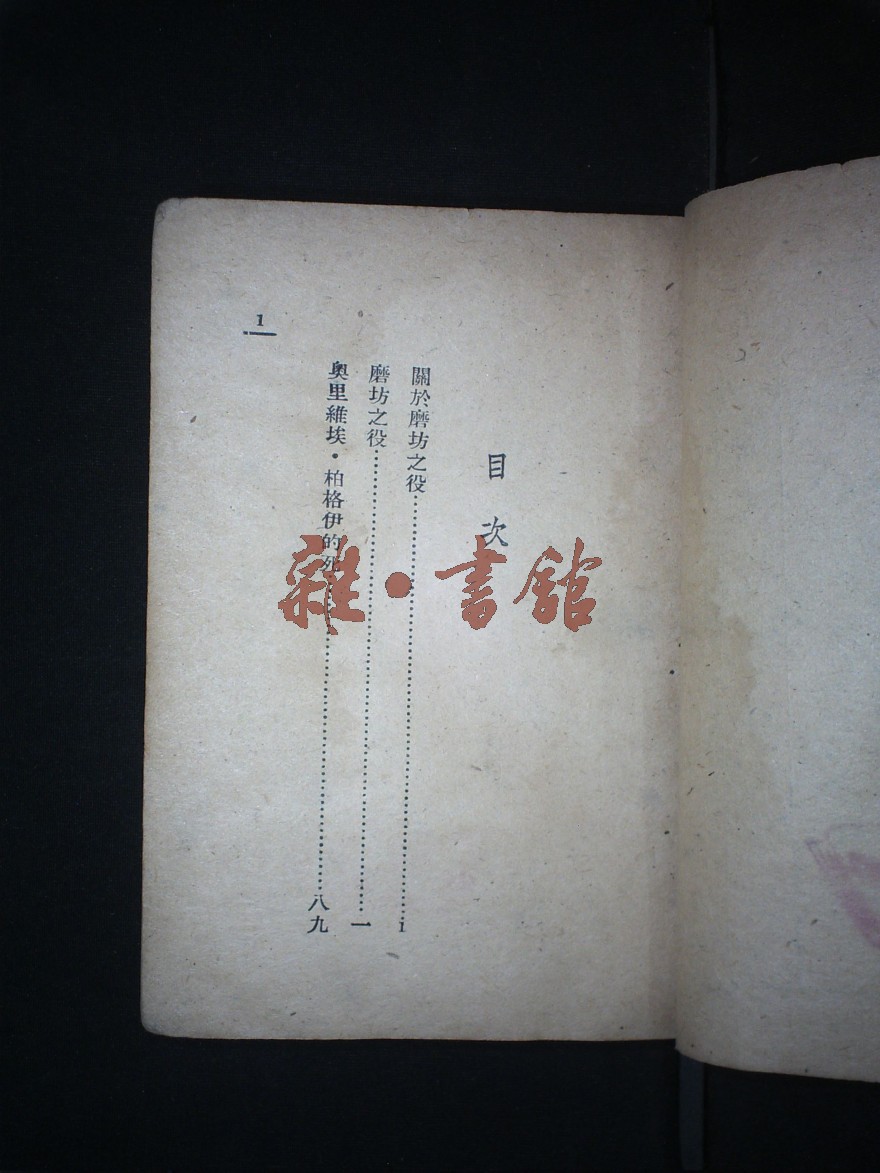 目次
關於磨坊之役……1
磨坊之役……一
奧里維埃·柏格伊的死……八九
1
雜·書館